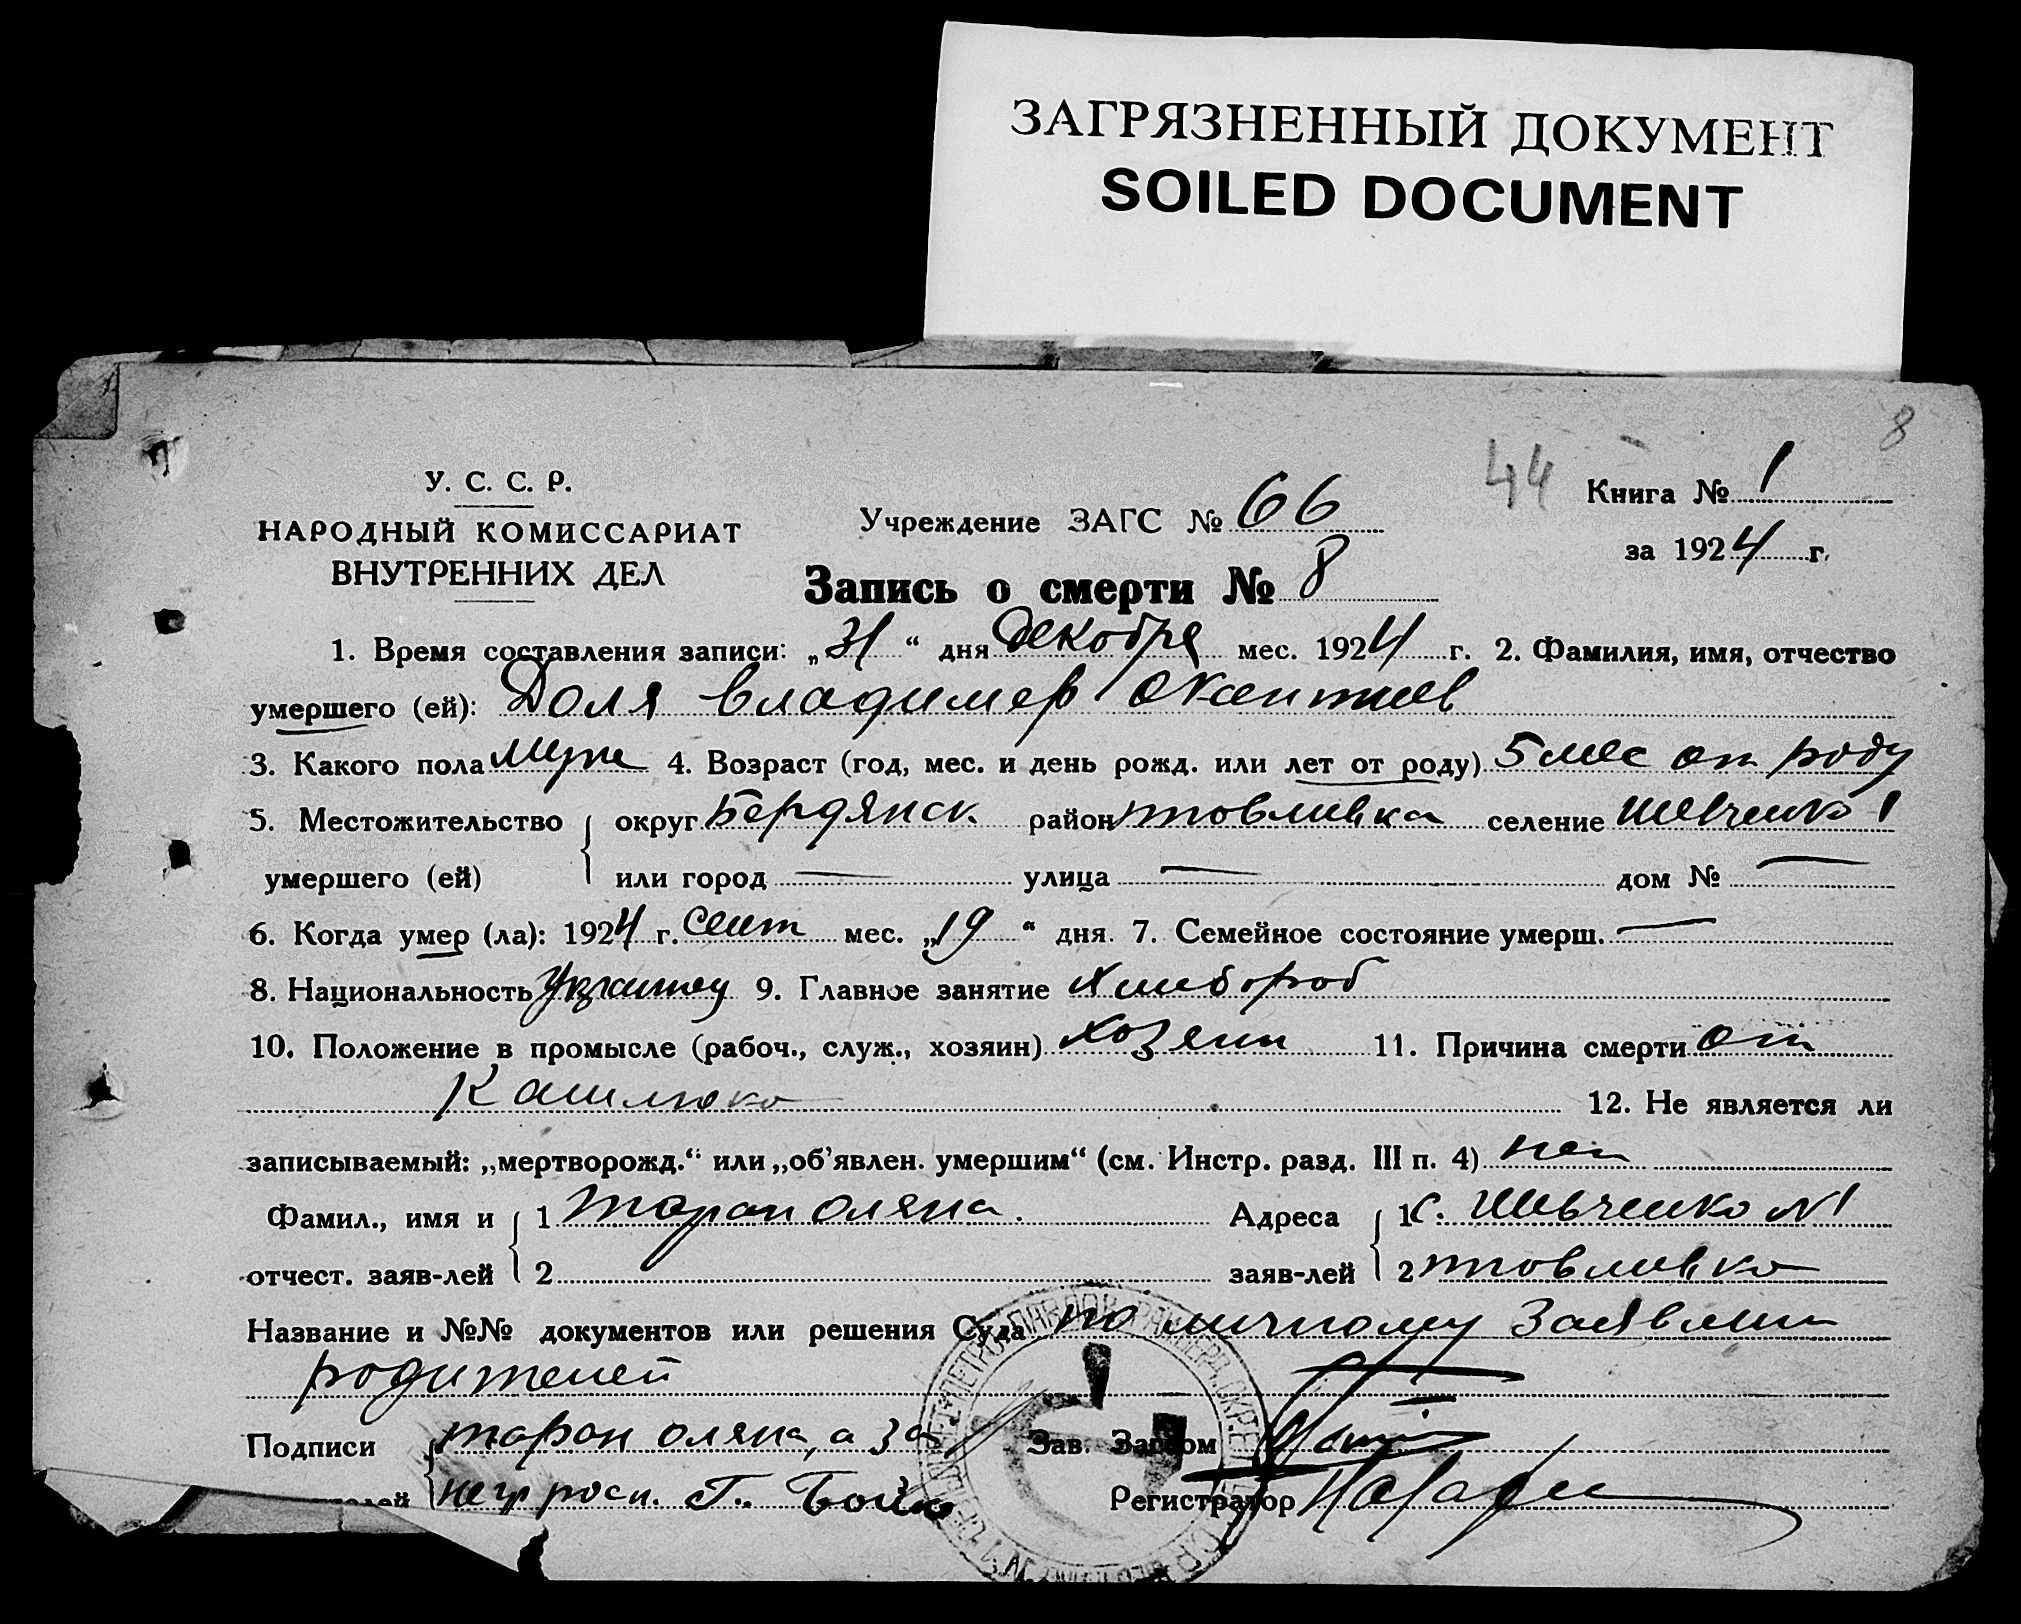 ЗАГРЯЗНЕННЫЙ ДОКУМЕНТ
SOILED DOCUMENT
8
У. С. С. Р.
НАРОДНЫЙ КОМИССАРИАТ
ВНУТРЕННИХ ДЕЛ
Учреждение ЗАГС № 66
44
Книга № 1
за 1924 г.
Запись о смерти № 8
1. Время составления записи: „31“ дня декобря мес. 1924 г. 2. Фамилия, имя, отчество
умершего (ей): Доля Владимер
3. Какого пола муж 4. Возраст (год, мес. и день рожд. или лет от роду) 5 мес от роду
5. Местожительство округ Бердянск район селение Шевченко 1
умершего (ей) или город — улица — дом № —
6. Когда умер (ла): 1924 г. сент мес. „19“ дня. 7. Семейное состояние умерш. —
8. Национальность 9. Главное занятие Хлебороб
10. Положение в промысле (рабоч., служ., хозяин) хозяин 11. Причина смерти от
Кашлюка 12. Не является ли
записываемый: „мертворожд.“ или „об'явлен. умершим“ (см. Инстр. разд. III п. 4) нет
Фамил., имя и 1 Таран Оляна. Адреса 1 с. Шевченко №1
отчест. заяв-лей 2 заяв-лей 2
Название и №№ документов или решения Суда по личному
родителей
Подписи Таран Оляна, а за Зав. Загсом
негр росп. Г. Бойко Регистратор